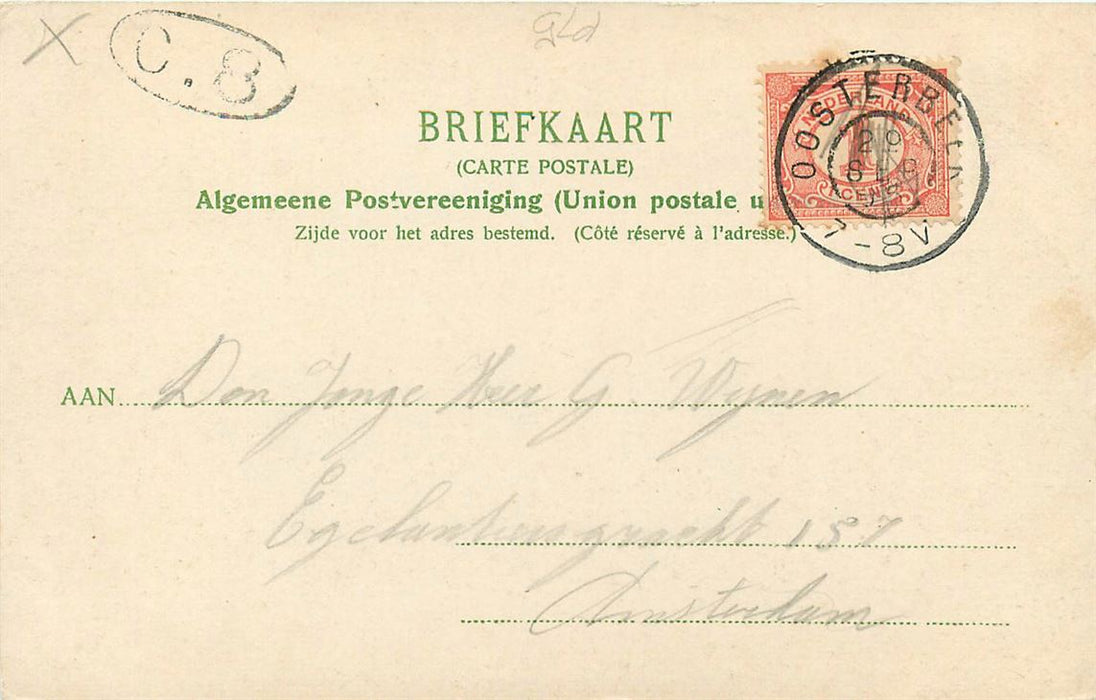 C.8
Gld
BRIEFKAART
(CARTE POSTALE)
Algemeene Postvereeniging (Union postale u
Zijde voor het adres bestemd. (Côté réservé à l'adresse.)
NEDERLAND
CENT
OOSTERBEEK
20
7-8V
AAN Den Jonge Heer G. Wijnen
Egelantiersgracht 157
Amsterdam